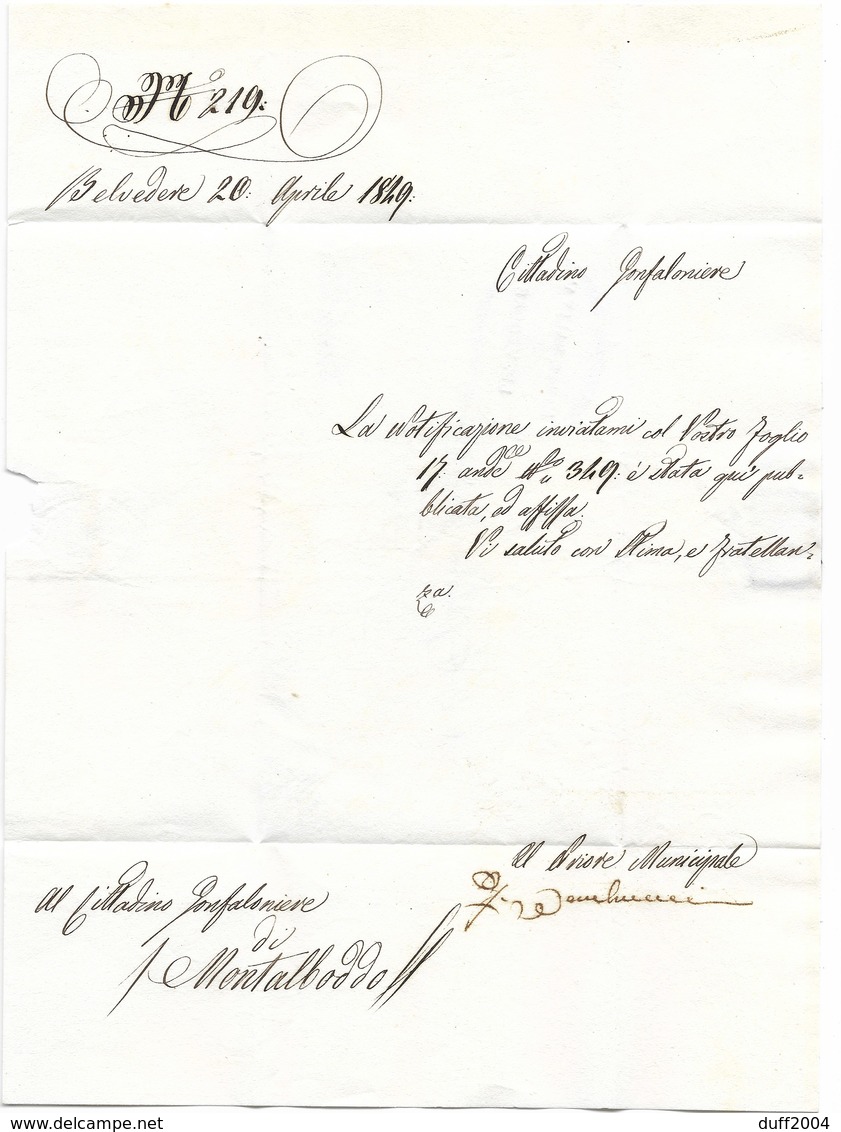 N.º 219:
Belvedere 20: Aprile 1849:
Cittadino Gonfaloniere
La Notificazione inviatami col Vostro Foglio
17: andce No 349: é stata qui pub=
blicata, ed affissa.
Vi saluto con Stima, e Fratellan=
za.
Il Priore Municipale
Al Cittadino Gonfaloniere
di
Montalboddo
delcampe.net
duff2004